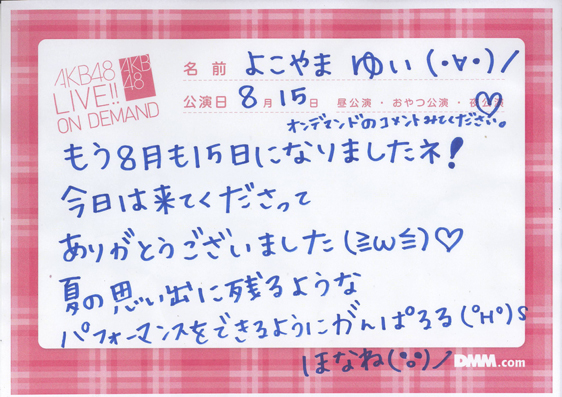 AKB48
LIVE!!
ON DEMAND
AKB
48
名前 よこやま ゆい (・∀・)ノ
公演日 8月15日 昼公演・おやつ公演・夜公演
オンデマンドのコメントみてください。
もう8月も15日になりましたネ!
今日は来てくださって
ありがとうございました(≧ω≦)♡
夏の思い出に残るような
パフォーマンスをできるようにがんばるる(°H°)S
ほなね(°o°)ノ
DMM.com